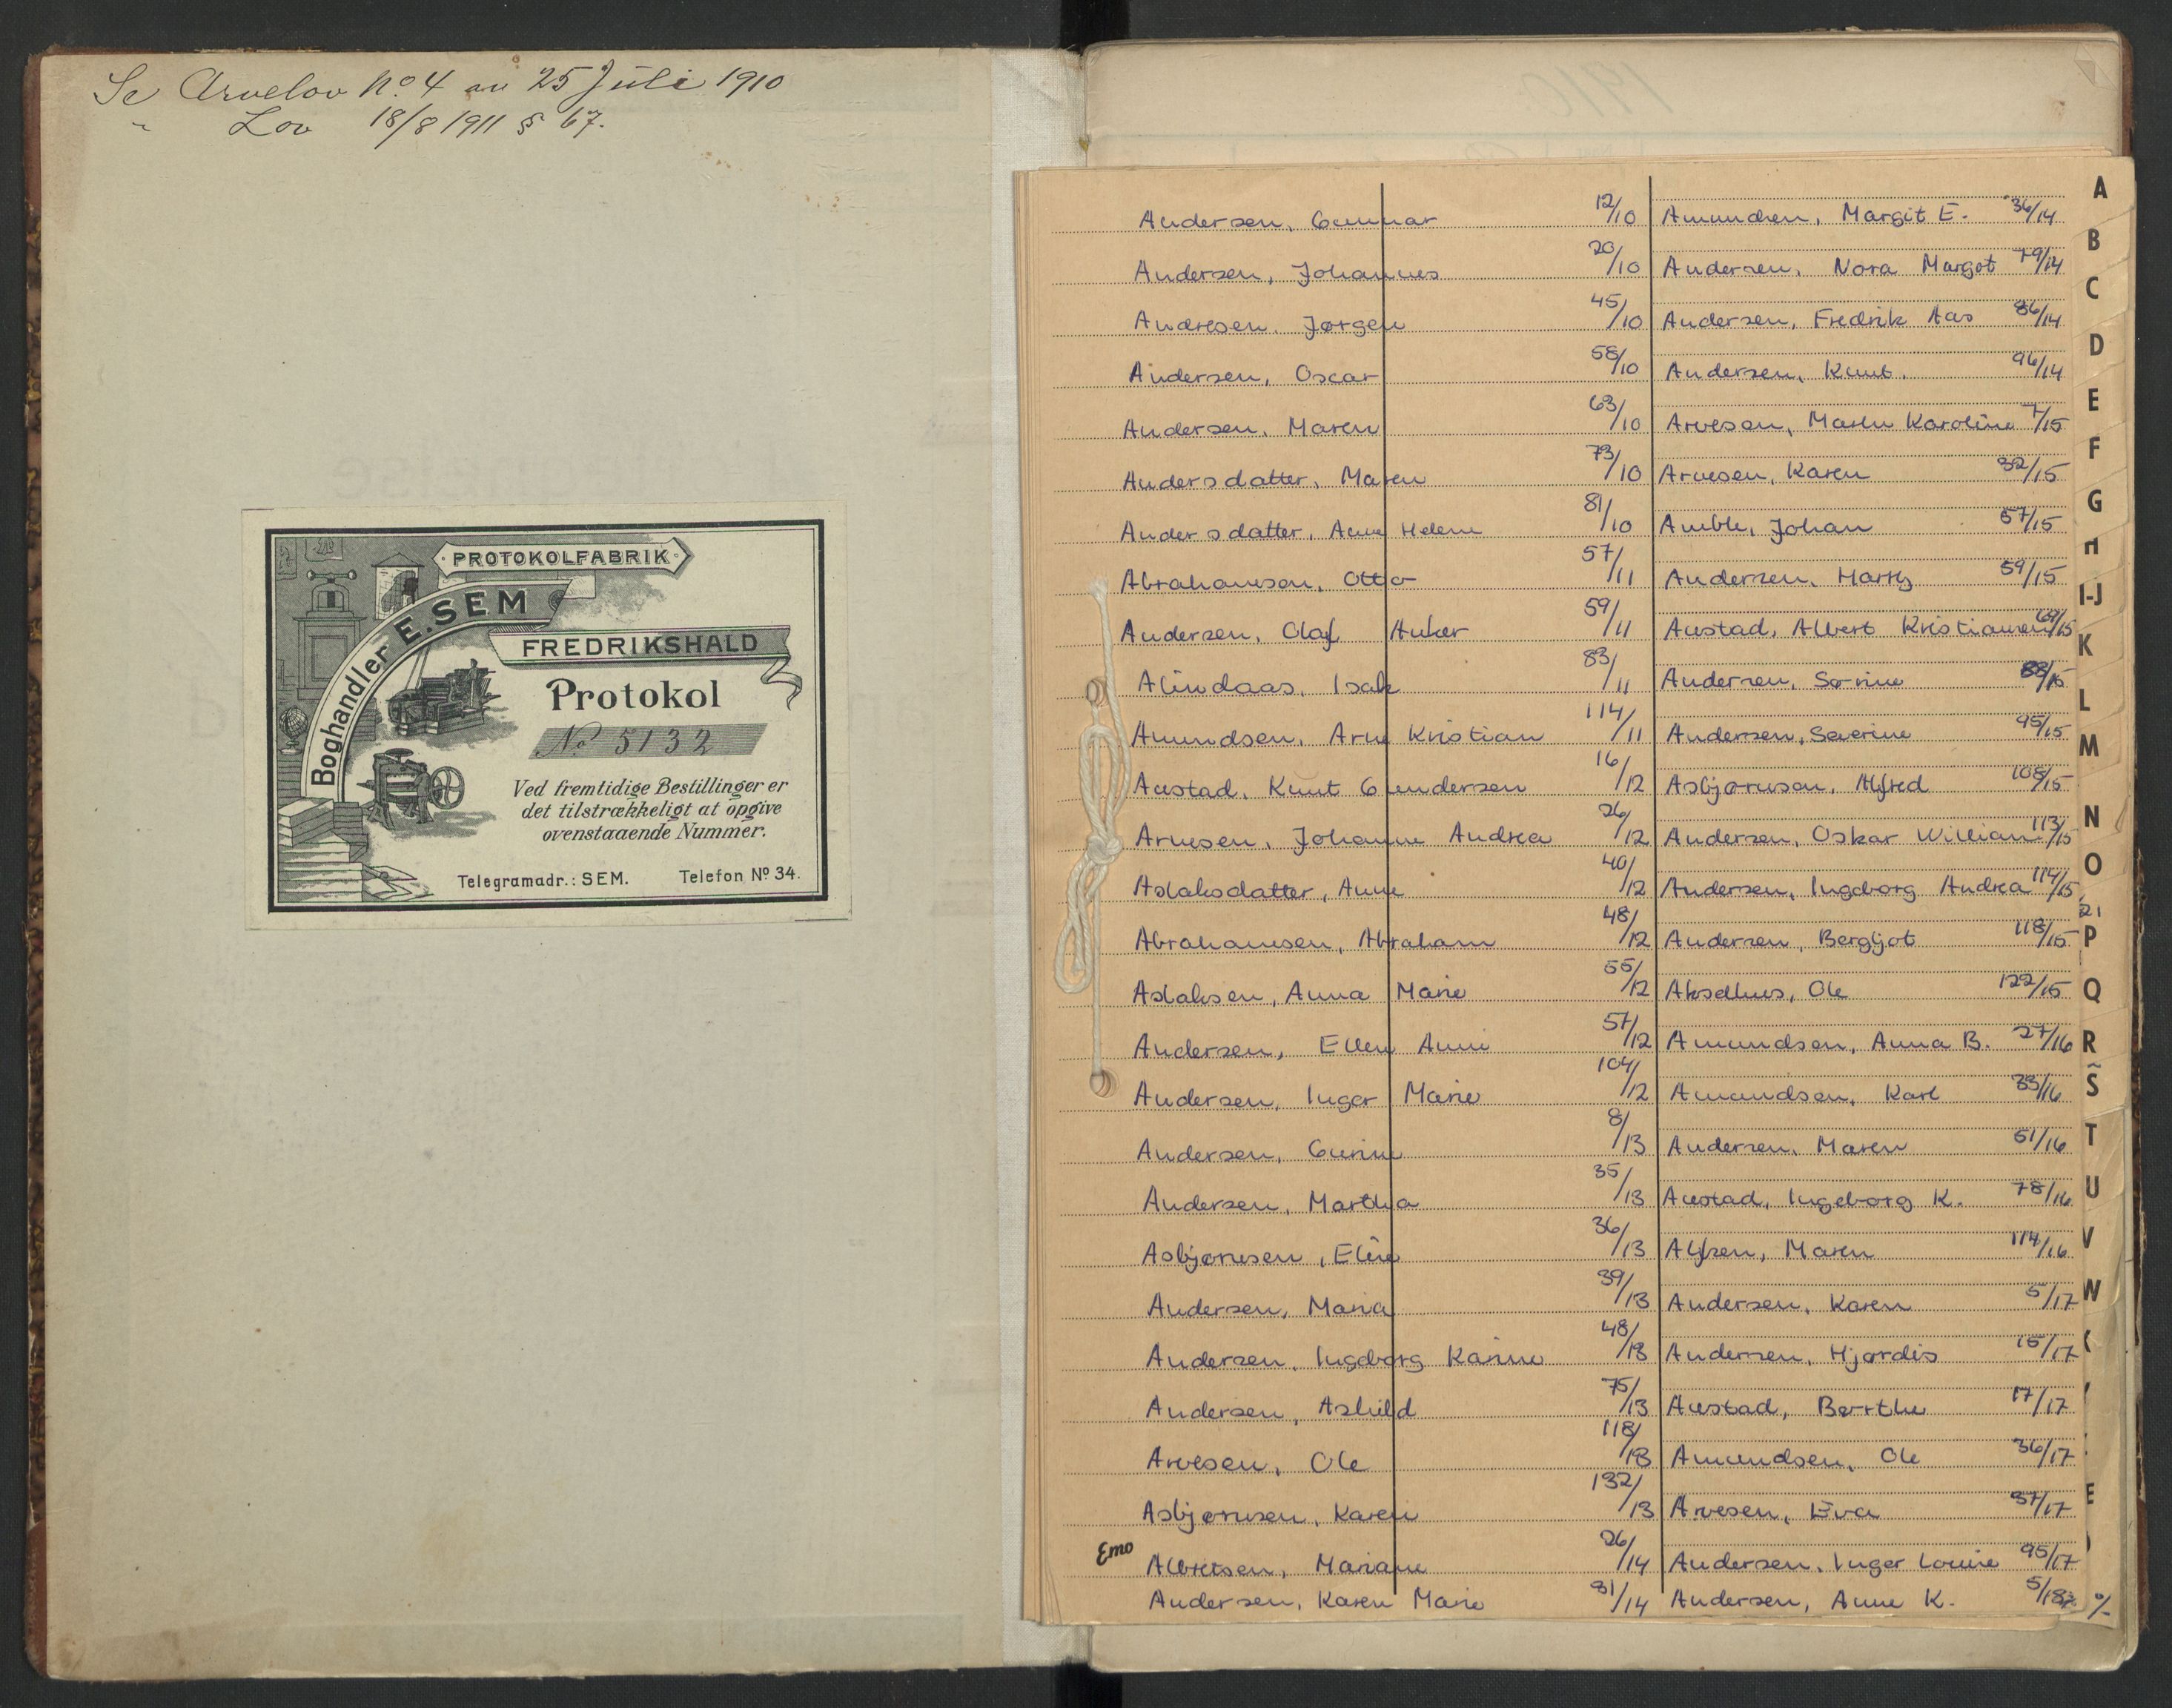 Se Arvelov No. 4 av 25 Juli 1910
" Lov 18/8 1911 § 67.
PROTOKOLFABRIK
Boghandler E. SEM
FREDRIKSHALD
Protokol
No 5132
Ved fremtidige Bestillinger er
det tilstrækkeligt at opgive
ovenstaaende Nummer.
Telegramadr.: SEM. Telefon No 34.
Andersen, Gunnar 12/10
Andersen, Johannes 20/10
Andresen, Jørgen 45/10
Andersen, Oscar 58/10
Andersen, Maren 63/10
Andersdatter, Maren 73/10
Andersdatter, Anne Helene 81/10
Abrahamsen, Otto 57/11
Andersen, Olaf Anker 59/11
Alindaas, Isak 83/11
Amundsen, Arne Kristian 114/11
Austad, Knut Gundersen 16/12
Arnesen, Johanne Andrea 26/12
Aslaksdatter, Anne 40/12
Abrahamsen, Abraham 48/12
Aslaksen, Anna Marie 55/12
Andersen, Ellen Anni 57/12
Andersen, Inger Marie 104/12
Andersen, Gurine 8/13
Andersen, Martha 35/13
Asbjørnsen, Eline 36/13
Andersen, Maria 39/13
Andersen, Ingeborg Karine 48/13
Andersen, Ashild 75/13
Arvesen, Ole 118/13
Asbjørnsen, Karen 132/13
Emo
Albretsen, Mariane 26/14
Andersen, Karen Marie 31/14
Amundsen, Margit E. 36/14
Andersen, Nora Margot 79/14
Andersen, Fredrik Aas 86/14
Andersen, Knut. 96/14
Arvesen, Maren Karoline 7/15
Arnesen, Karen 32/15
Amble, Johan 57/15
Andersen, Harry 59/15
Austad, Albert Kristiansen 69/15
Andersen, Sørine 88/15
Andersen, Severine 95/15
Asbjørnsen, Alfred 108/15
Andersen, Oskar William 113/15
Andersen, Ingeborg Andrea 114/15
Andersen, Bergljot 118/15
Akselhus, Ole 122/15
Amundsen, Anna B. 27/16
Amundsen, Karl 33/16
Andersen, Maren 51/16
Austad, Ingeborg K. 78/16
Alfsen, Maren 114/16
Andersen, Karen 5/17
Andersen, Hjørdis 15/17
Austad, Berthe 17/17
Amundsen, Ole 36/17
Arvesen, Eva 37/17
Andersen, Inger Louise 95/17
Andersen, Anne K. 5/18
A
B
C
D
E
F
G
H
I-J
K
L
M
N
O
P
Q
R
S
T
U
V
W